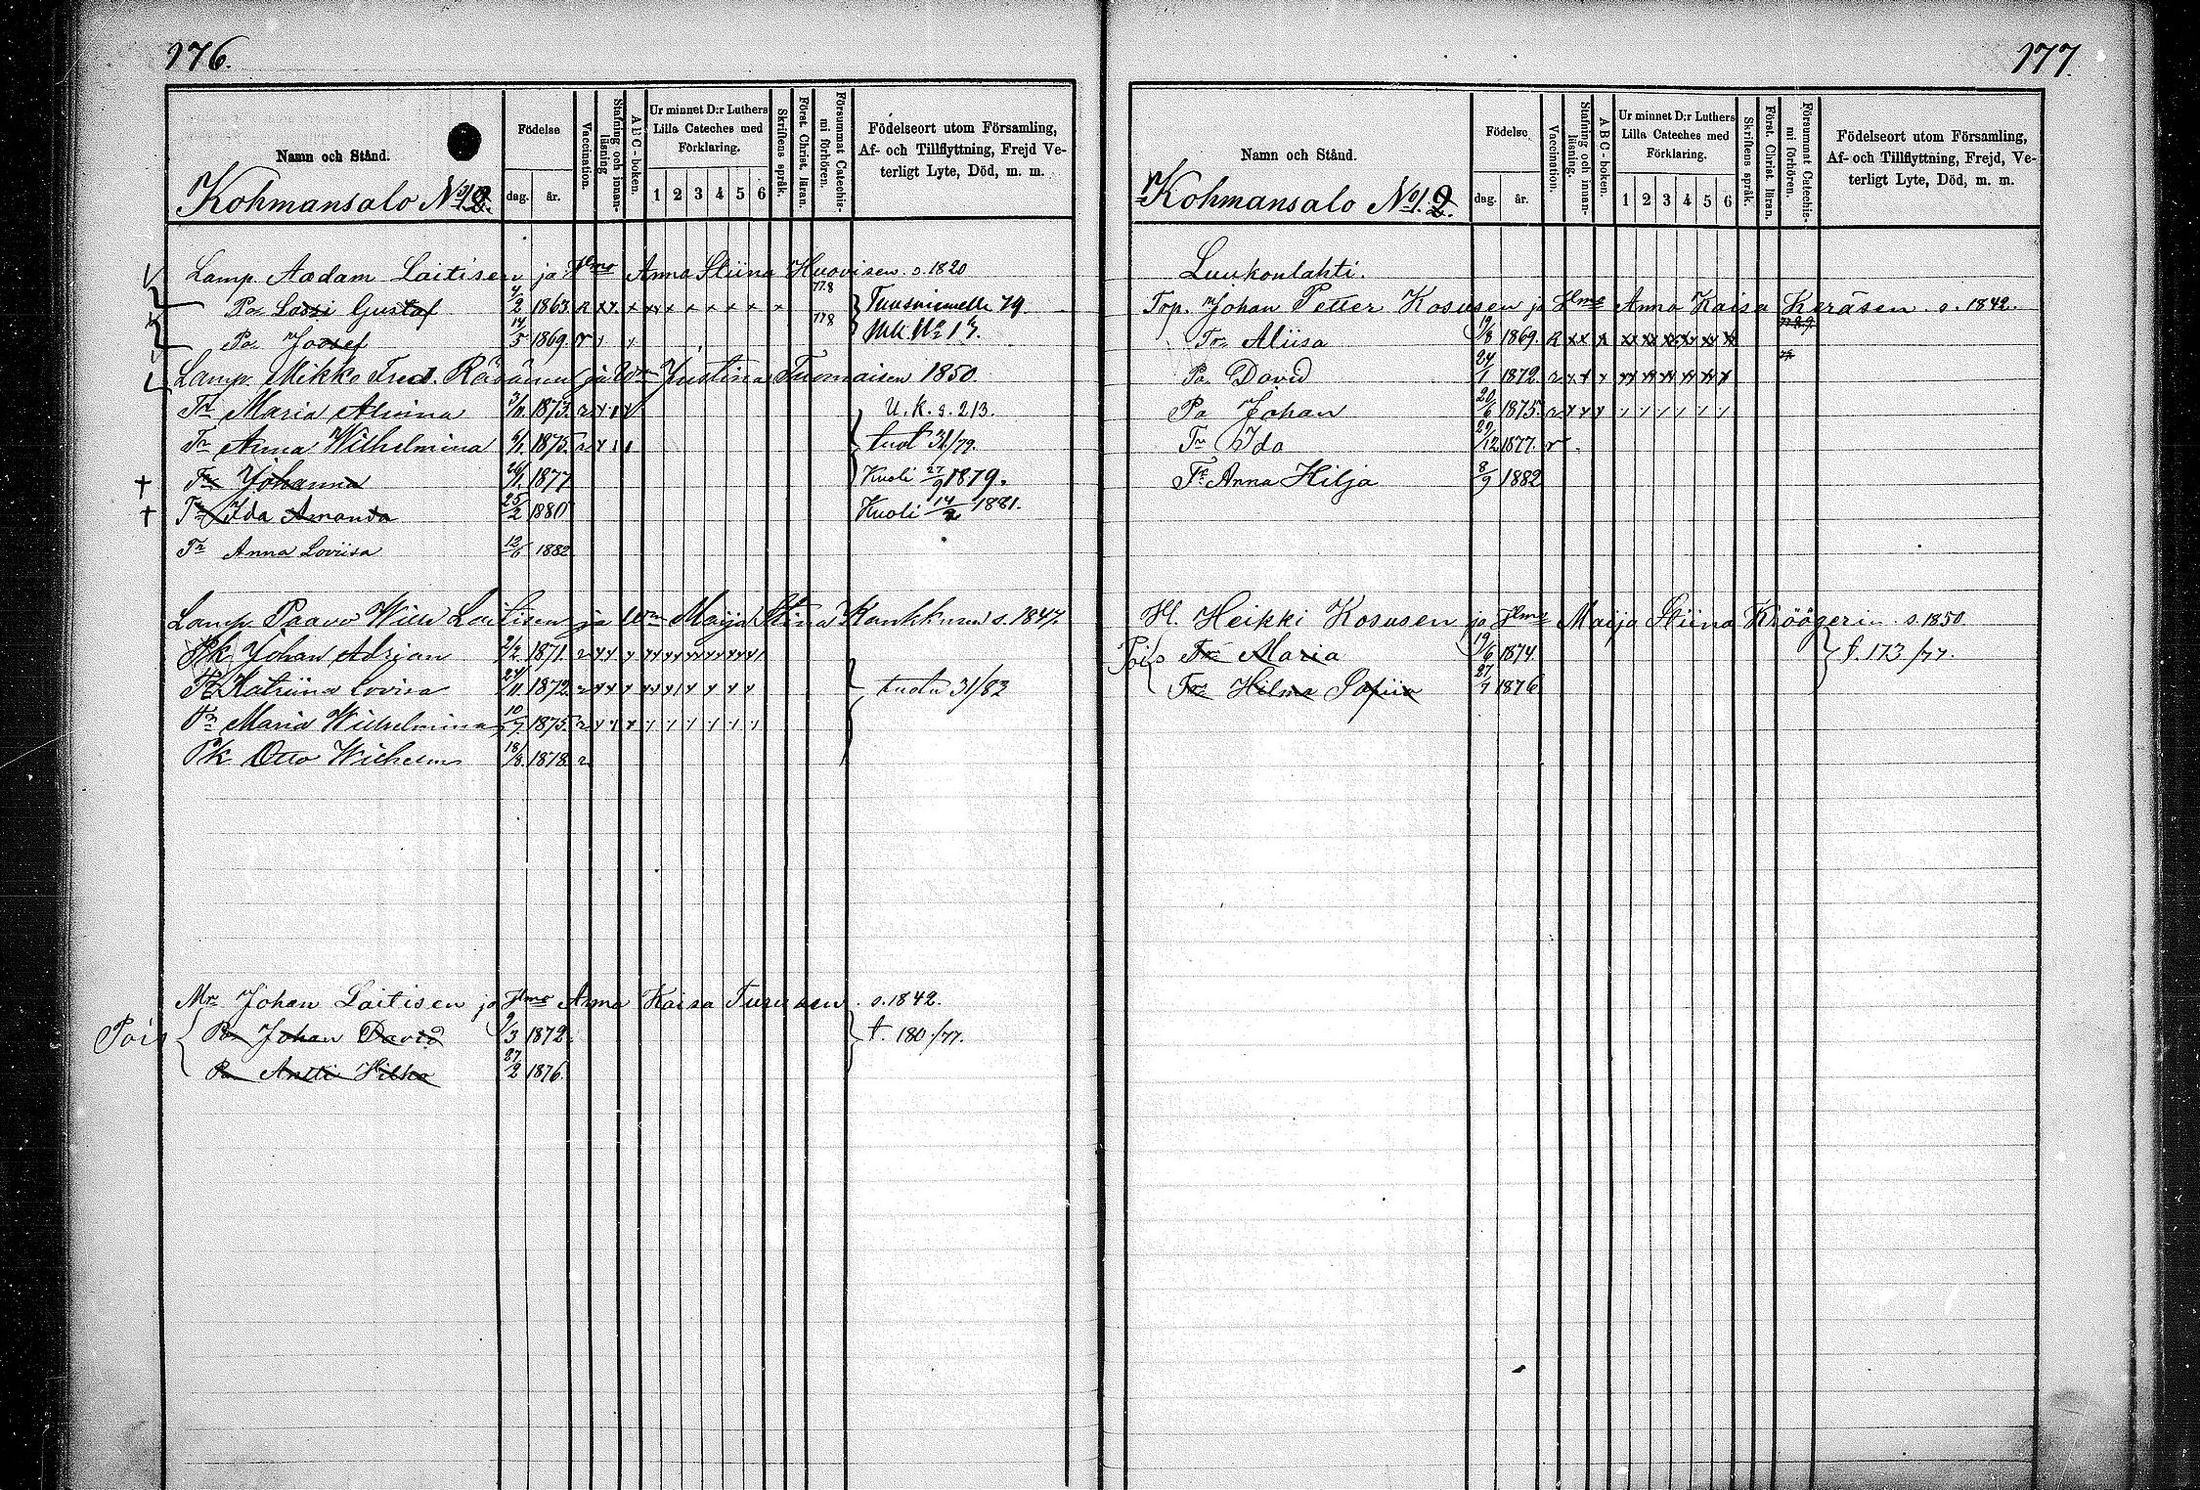 176.
Namn och Stånd.
Födelse
dag. år.
Vaccination.
Stafning och innan-läsning
ABC-boken.
Ur minnet D:r Luthers
Lilla Cateches med
Förklaring.
1 2 3 4 5 6
Skriftens språk.
Först. Christ. läran.
Försummat Catechis-mi förhören.
Födelseort utom Församling,
Af- och Tillflyttning, Frejd Ve-
terligt Lyte, Död, m. m.
Kohmansalo No
Lamp. Aadam Laitisen ja Hlmo Anna Stiina Huovisen s. 1820
Po Lassi Gustaf 4/2 1863. 778
Po Jossef 14/5 1869. 778
Lamp. Mikko Fred. Räsänen ja Wm Justina Tuomaisen 1850.
Tr Maria Alvina 3/11 1873. U. K. s. 213.
Tr Anna Wilhelmina 1875. tuot 31/79.
Tr Johanna 1877 Kuoli 27/9 1879.
Tr Ida Amanda 25/2 1880 Kuoli 14/2 1881.
Tr Anna Loviisa 12/6 1882
Lamp. Paavo Wilh Laitisen ja Wm Maija Stina Kankkunen s. 1847.
Pk Johan Adrian 2/2 1871.
Tr Katriina Lovisa 24/11 1872. tuotu 31/82
Tr Maria Wilhelmina 10/7 1875.
Pk Otto Wilhelm 18/8 1878.
Mr Johan Laitisen ja Hlmo Anna Kaisa Turusen s. 1842.
Pois
Po Johan David 9/3 1872. t. 180./77.
Po Antti Hilka 27/2 1876.
177.
Namn och Stånd.
Födelse
dag. år.
Vaccination.
Stafning och innan-läsning.
ABC-boken.
Ur minnet D:r Luthers
Lilla Cateches med
Förklaring.
1 2 3 4 5 6
Skriftens språk.
Först. Christ. läran.
Försummat Catechis-mi förhören.
Födelseort utom Församling,
Af- och Tillflyttning, Frejd, Ve-
terligt Lyte, Död, m. m.
Kohmansalo No 1. 2.
Luukonlahti.
Torp. Johan Petter Kosusen ja Hlmo Anna Kaisa Keräsen s. 1842.
Tr Aliisa 19/8 1869.
Po David 24/1 1872.
Po Johan 20/6 1875.
Tr Ida 29/12 1877.
Tr Anna Hilja 8/9 1882
Hl. Heikki Kosusen ja Hlmo Maija Stiina Kröögerin s. 1850.
Pois
Tr Maria 19/6 1874. t. 173./77.
Tr Hilma Sofiia 27/7 1876